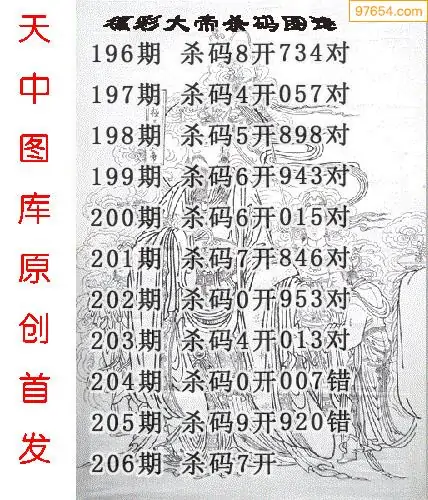 97654.com
彩大帝杀码图
天中图库原创首发
196期 杀码8开734对
197期 杀码4开057对
198期 杀码5开898对
199期 杀码6开943对
200期 杀码6开015对
201期 杀码7开846对
202期 杀码0开953对
203期 杀码4开013对
204期 杀码0开007错
205期 杀码9开920错
206期 杀码7开